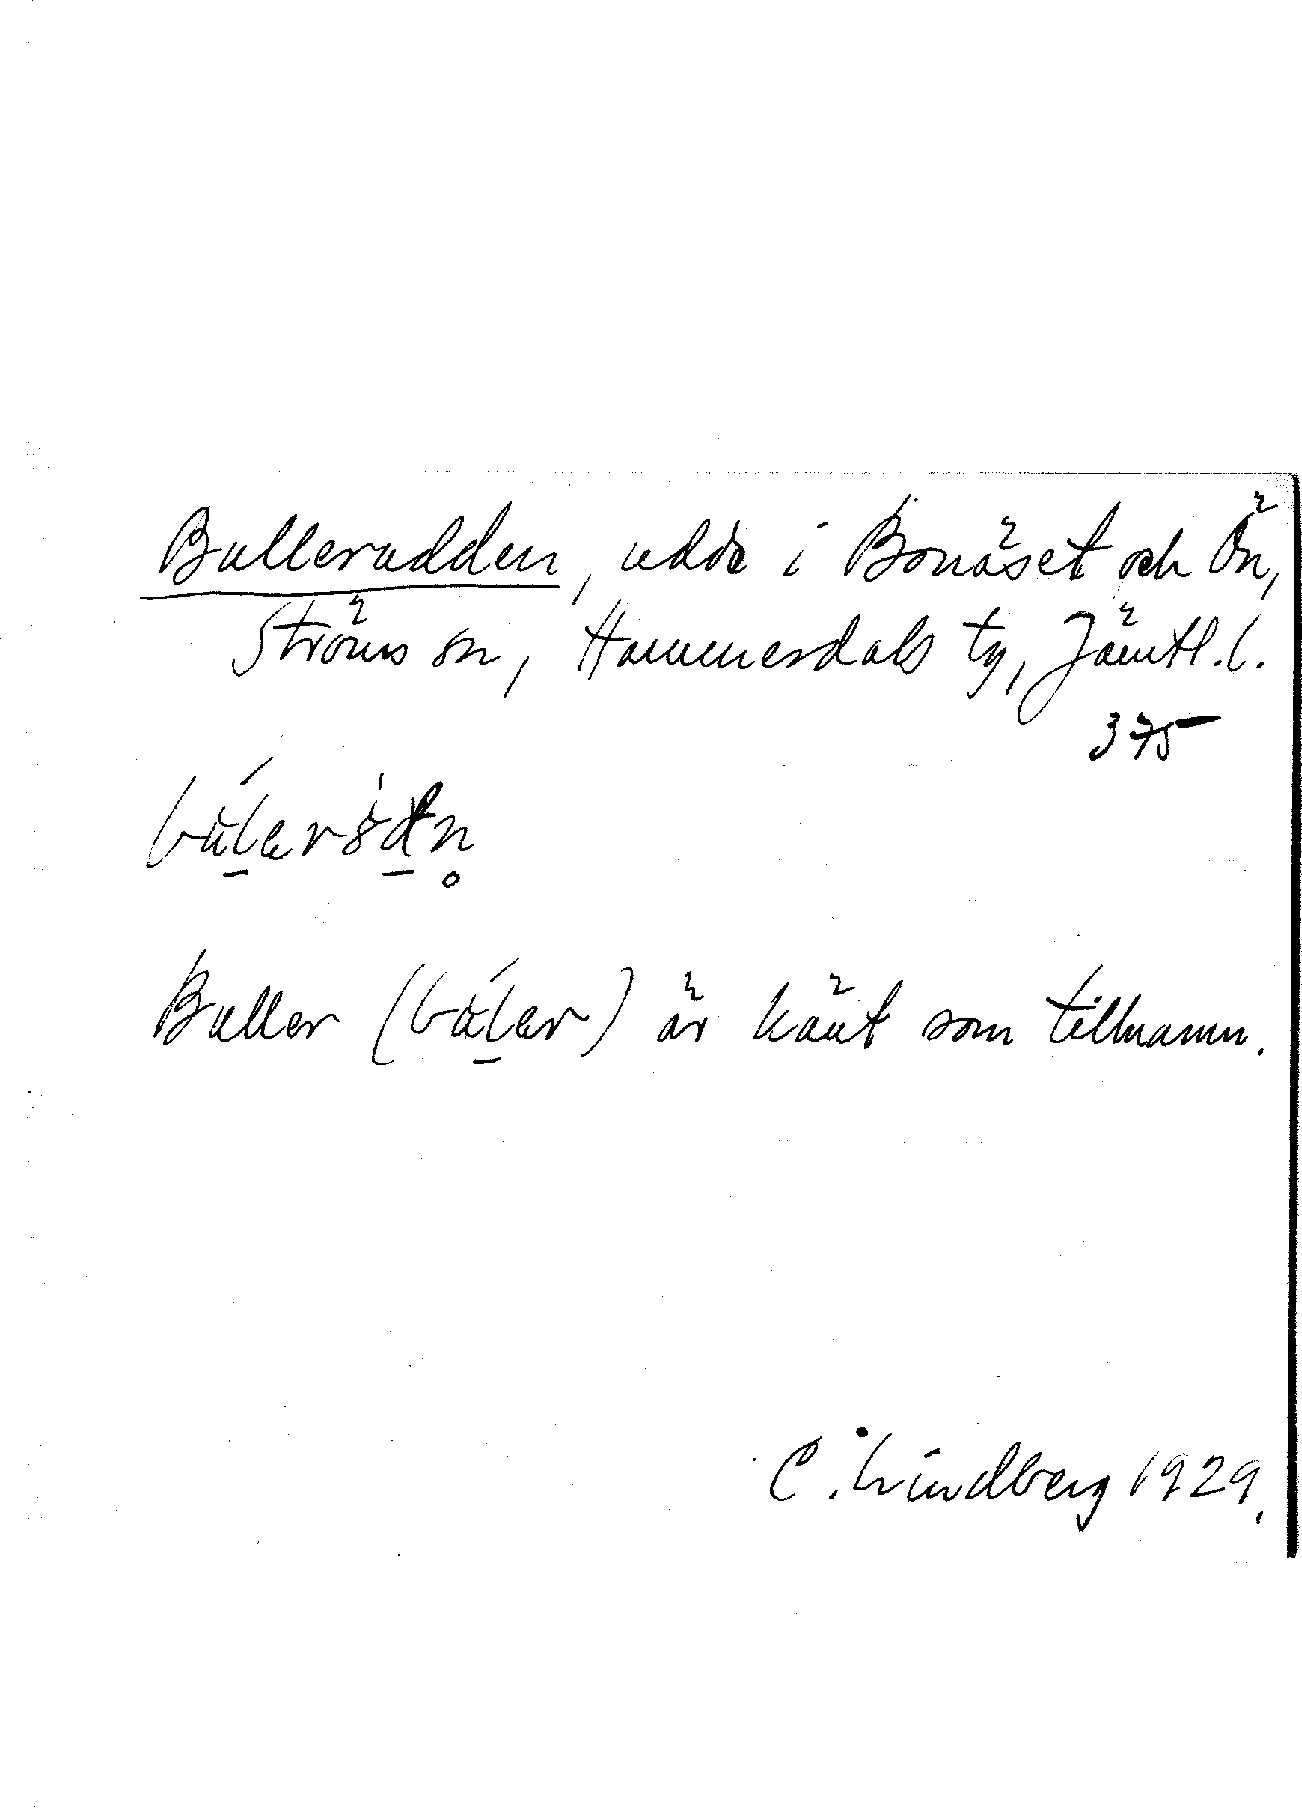 Bullerudden, udde i Bonäset och Ön,
Ströms sn, Hammerdals tg, Jämtl. l.
375
Buller (búl̠er) är känt som tillnamn.
C. Lindberg 1929.